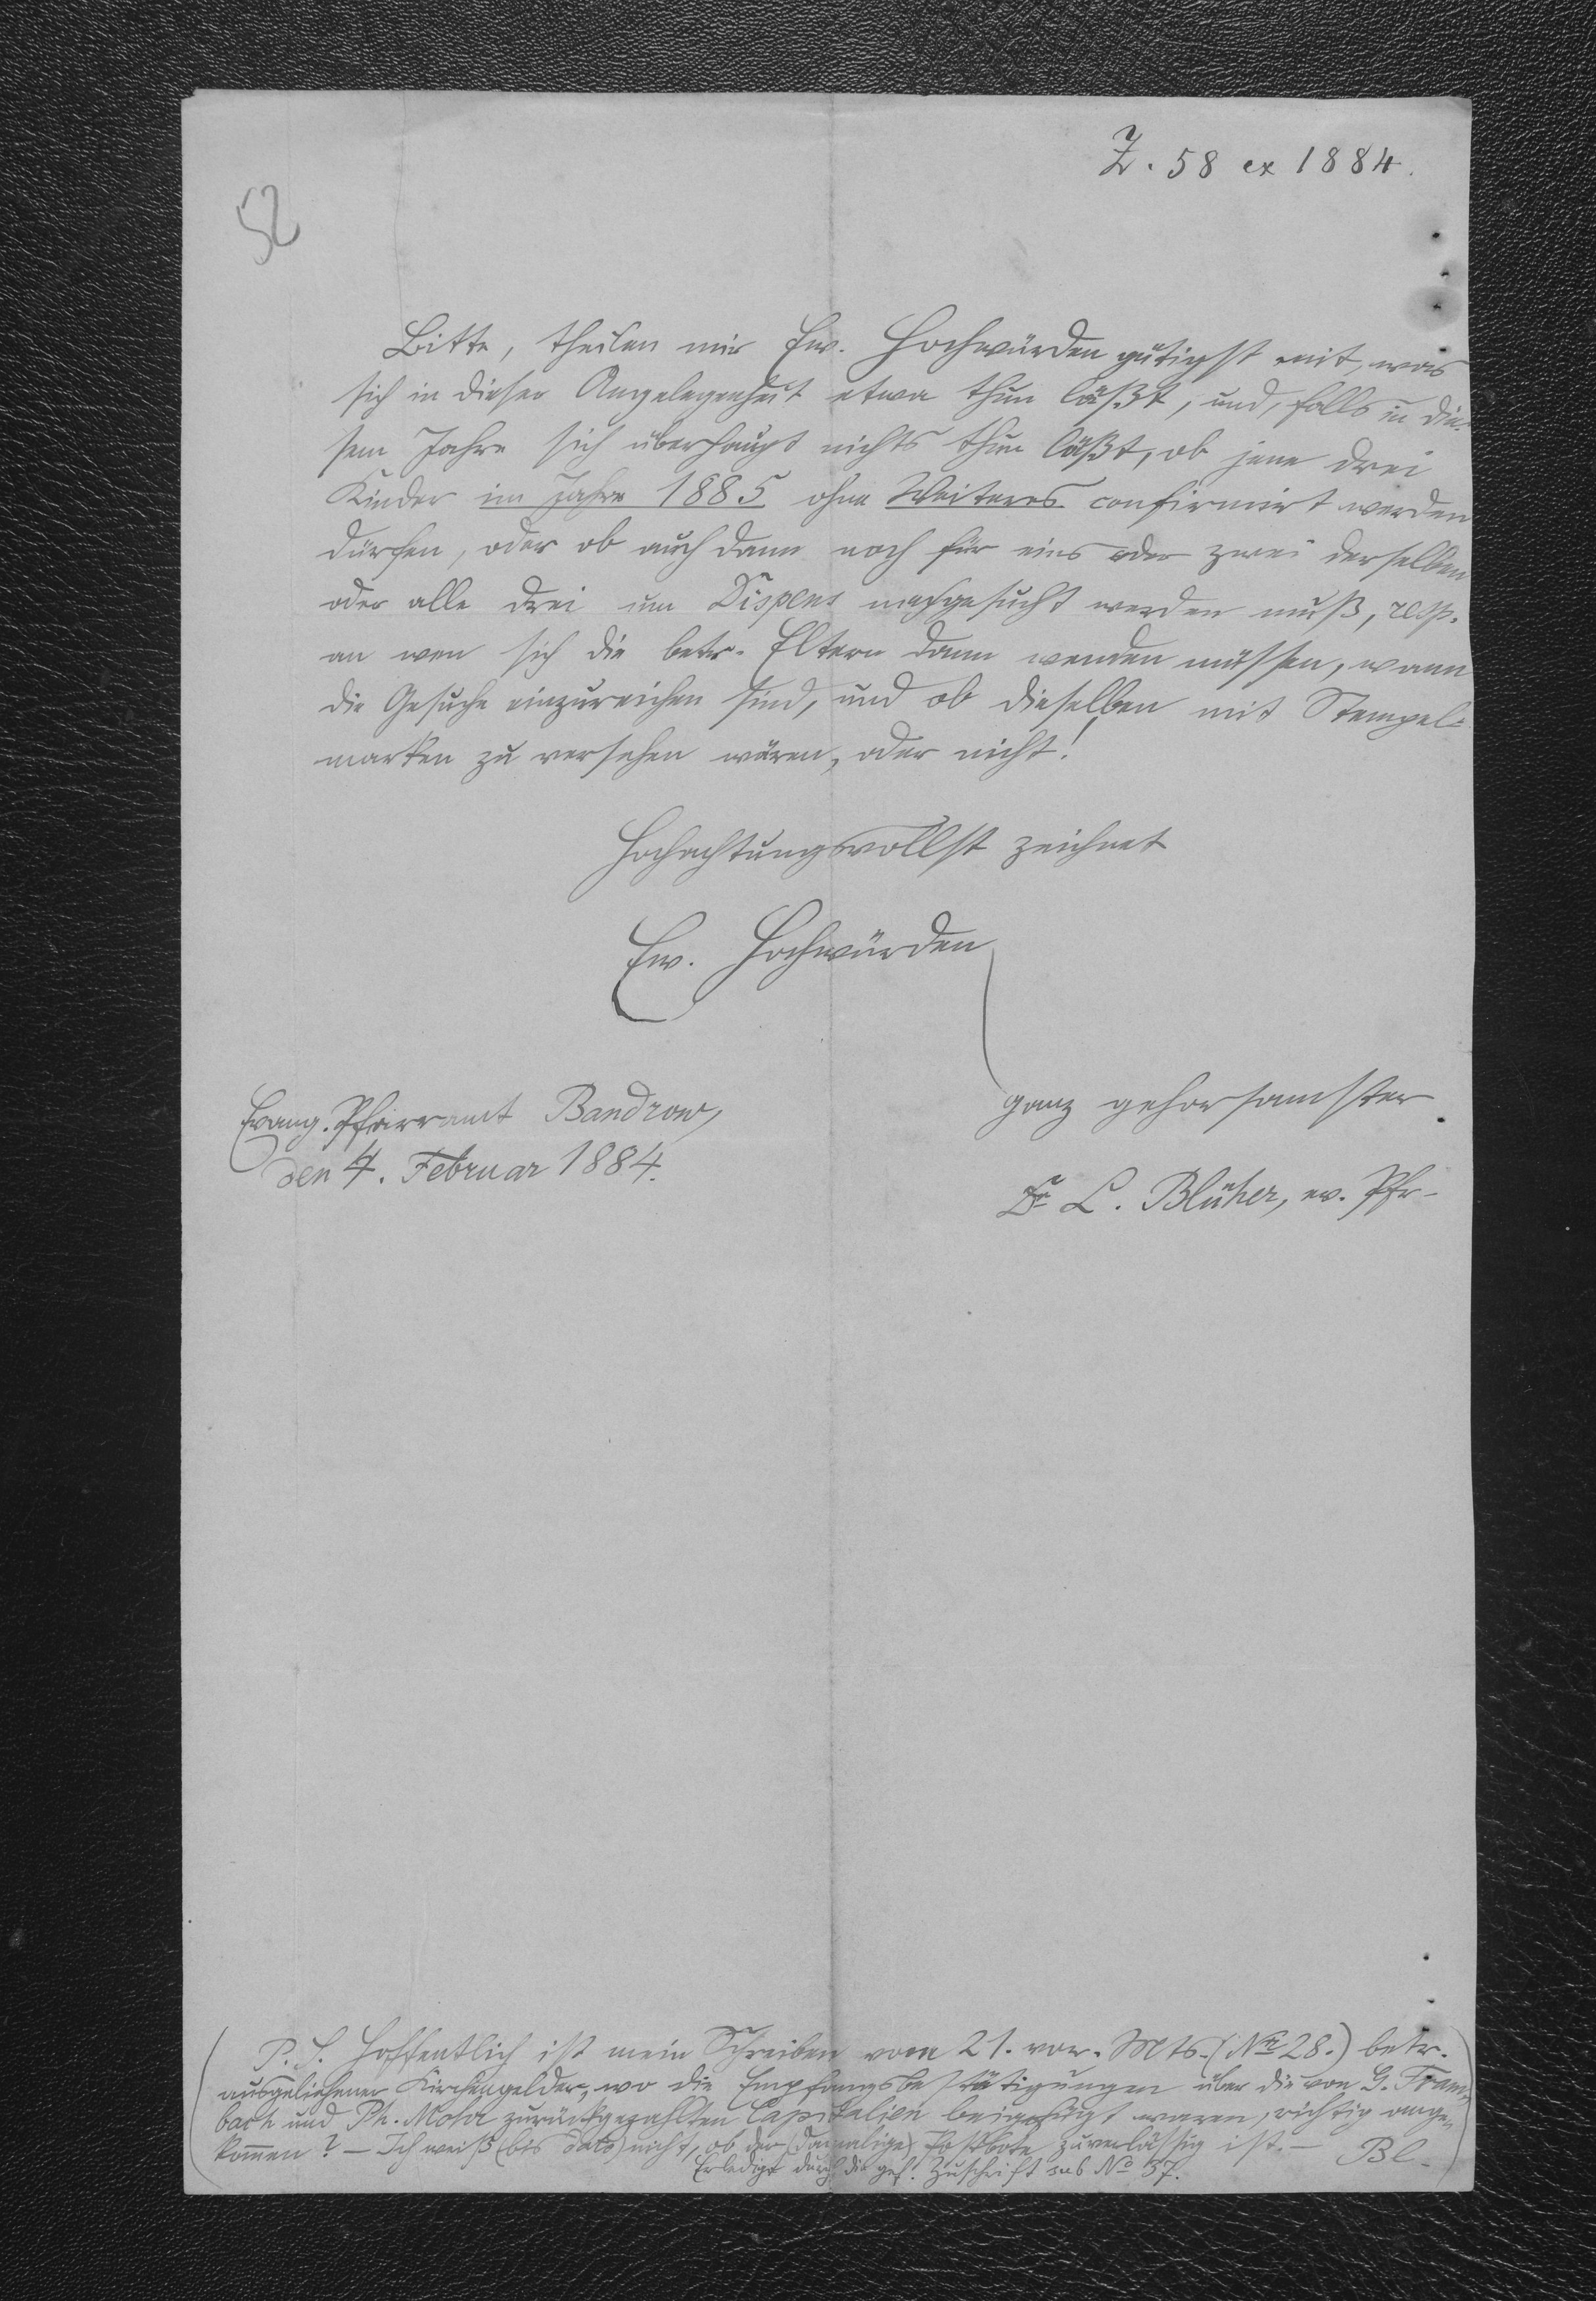 Z. 58 ex 1884.
52
Bitte, theilen mir Ew. Hochwürden gütigst mit, was
sich in dieser Angelegenheit etwa thun läßt, und, falls in die-
sem Jahre sich überhaupt nichts thun läßt, ob jene drei
Kinder im Jahre 1885 ohne Weiteres confirmirt werden
dürfen, oder ob auch dann noch für eins oder zwei derselben
oder alle drei um Dispens nachgesucht werden muß, resp.
an wen sich die betr. Eltern dann wenden müssen, wann
die Gesuche einzureichen sind, und ob dieselben mit Stempel-
marken zu versehen wären, oder nicht!
Hochachtungsvollst zeichnet
Ew. Hochwürden
ganz gehorsamster
Evang. Pfarramt Bandrow,
den 4. Februar 1884.
Dr L. Blüher, ev. Pfr.
(P. S. Hoffentlich ist mein Schreiben vom 21. vor. Mts. (No 28.) betr.
ausgeliehener Kirchengelder, wo die Empfangsbestätigungen über die von G. Fram-
bach und Ph. Mohr zurückgezahlten Capitalien beigefügt waren, richtig ange-
kommen? — Ich weiß (bis dato) nicht, ob der (damalige) Postbote zuverlässig ist. — Bl.)
Erledigt durch die gef. Zuschrift sub No 37.